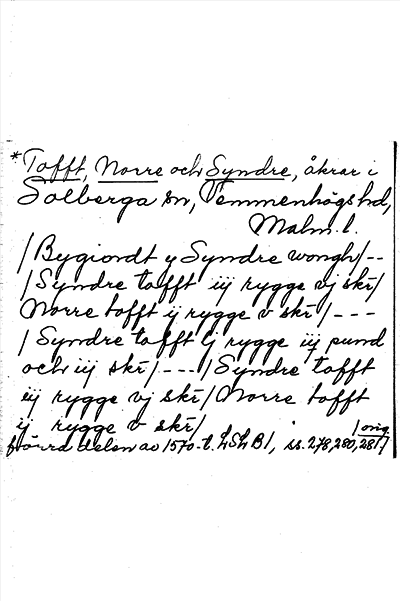 *Tofft, Norre och Syndre, åkrar i
Solberga sn, Vemmenhögs hd,
Malm. l.
/Bygiondt y Syndre wongh/--
/Syndre tofft iij rygge vj skr/
Norre tofft ij rygge v skr/---
/Syndre tofft lj rygge iij pund
och iij skr/---/Syndre tofft
iij rygge vj skr/Norre tofft
ij rygge v skr/
/orig.
delen av 1570-t. LSkB/, ss. 278, 280, 281/